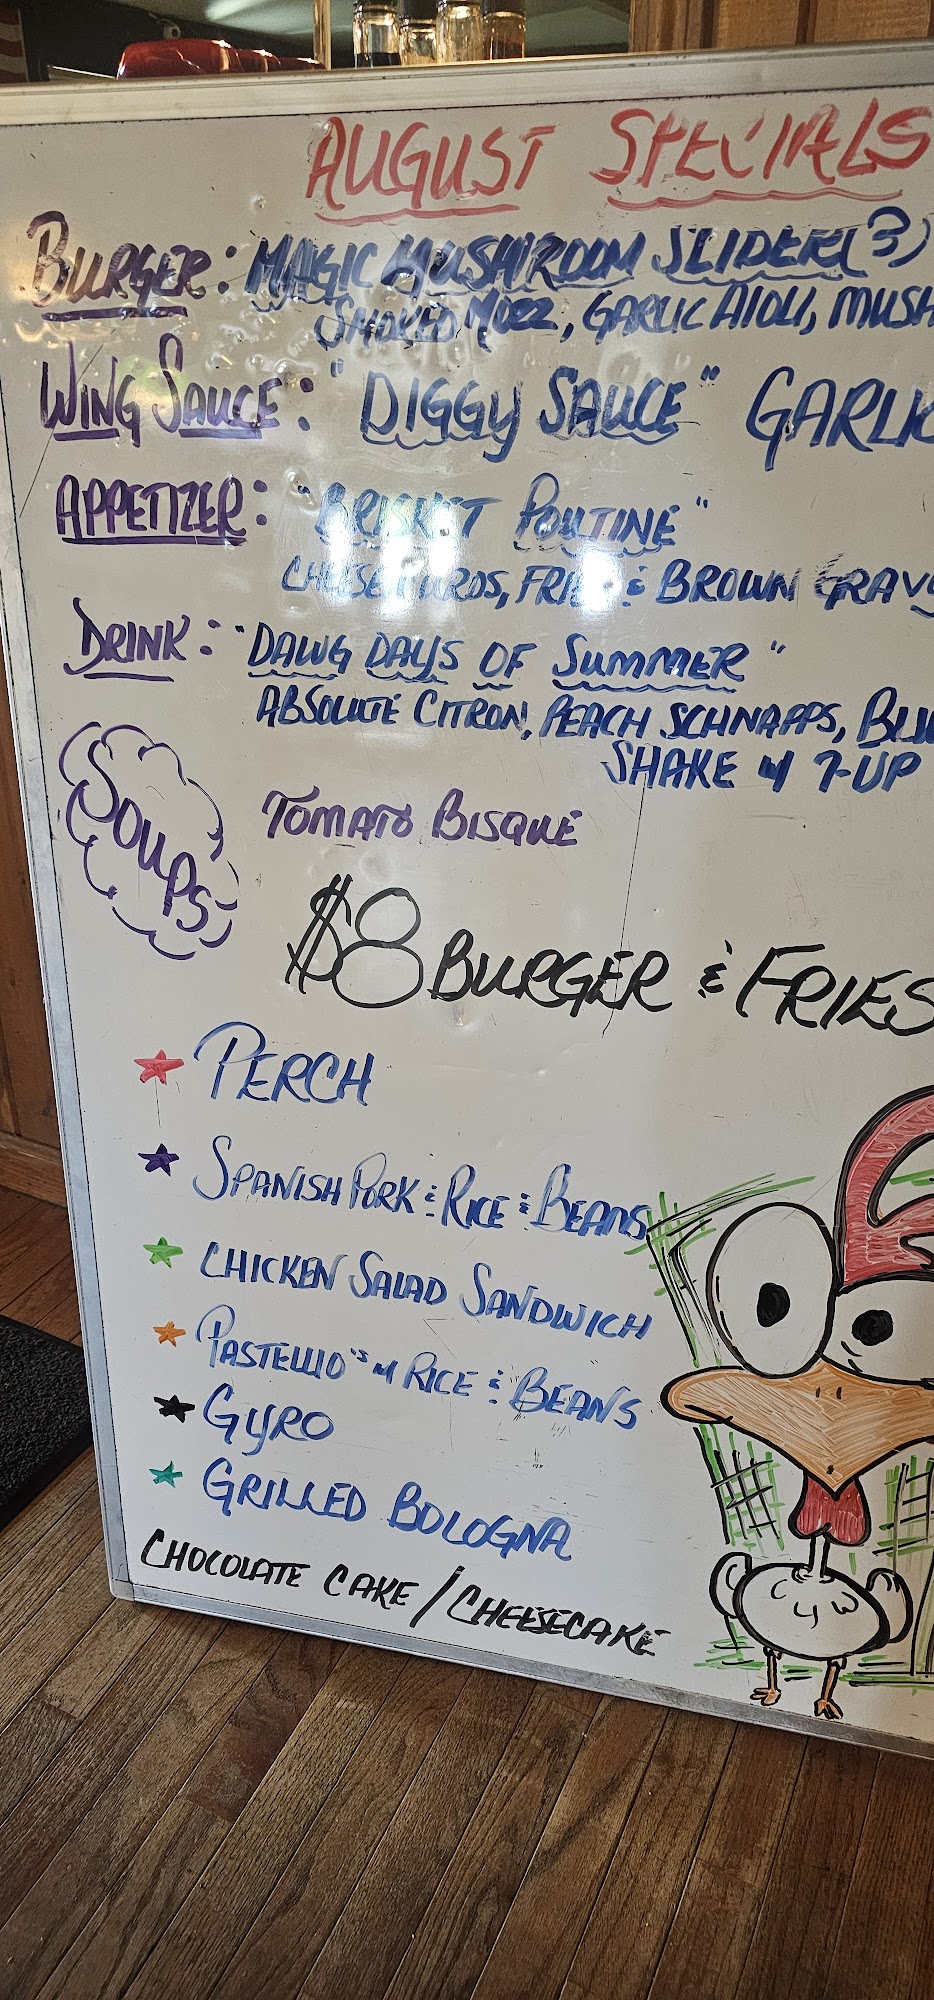 AUGUST SPECIALS
BURGER: MAGIC MUSHROOM SLIDER (3)
SMOKED MOZZ, GARLIC AIOLI, MUSH
WING SAUCE: "DIGGY SAUCE" GARLIC
APPETIZER: "BRISKET POUTINE"
CHEESE CURDS, FRIES & BROWN GRAVY
DRINK: "DAWG DAYS OF SUMMER"
ABSOLUTE CITRON, PEACH SCHNAPPS, BLU
SHAKE w/ 7-UP
SOUPS TOMATO BISQUE
$8 BURGER & FRIES
PERCH
SPANISH PORK & RICE & BEANS
CHICKEN SALAD SANDWICH
w/ RICE & BEANS
GYRO
GRILLED BOLOGNA
CHOCOLATE CAKE / CHEESECAKE